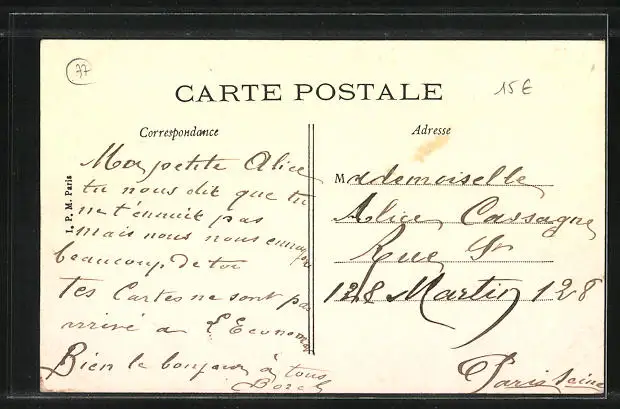 77
15€
CARTE POSTALE
Correspondance
Adresse
I. P. M. Paris
Ma petite Alice
tu nous dit que tu
ne t'ennuit pas
mais nous nous
beaucoup de toi
tes Cartes ne sont pas
arrivé a l'Econome
Bien le bonjour à tous
Mademoiselle
Alice Cassagne
Rue St
128 Martin 128
Paris Seine